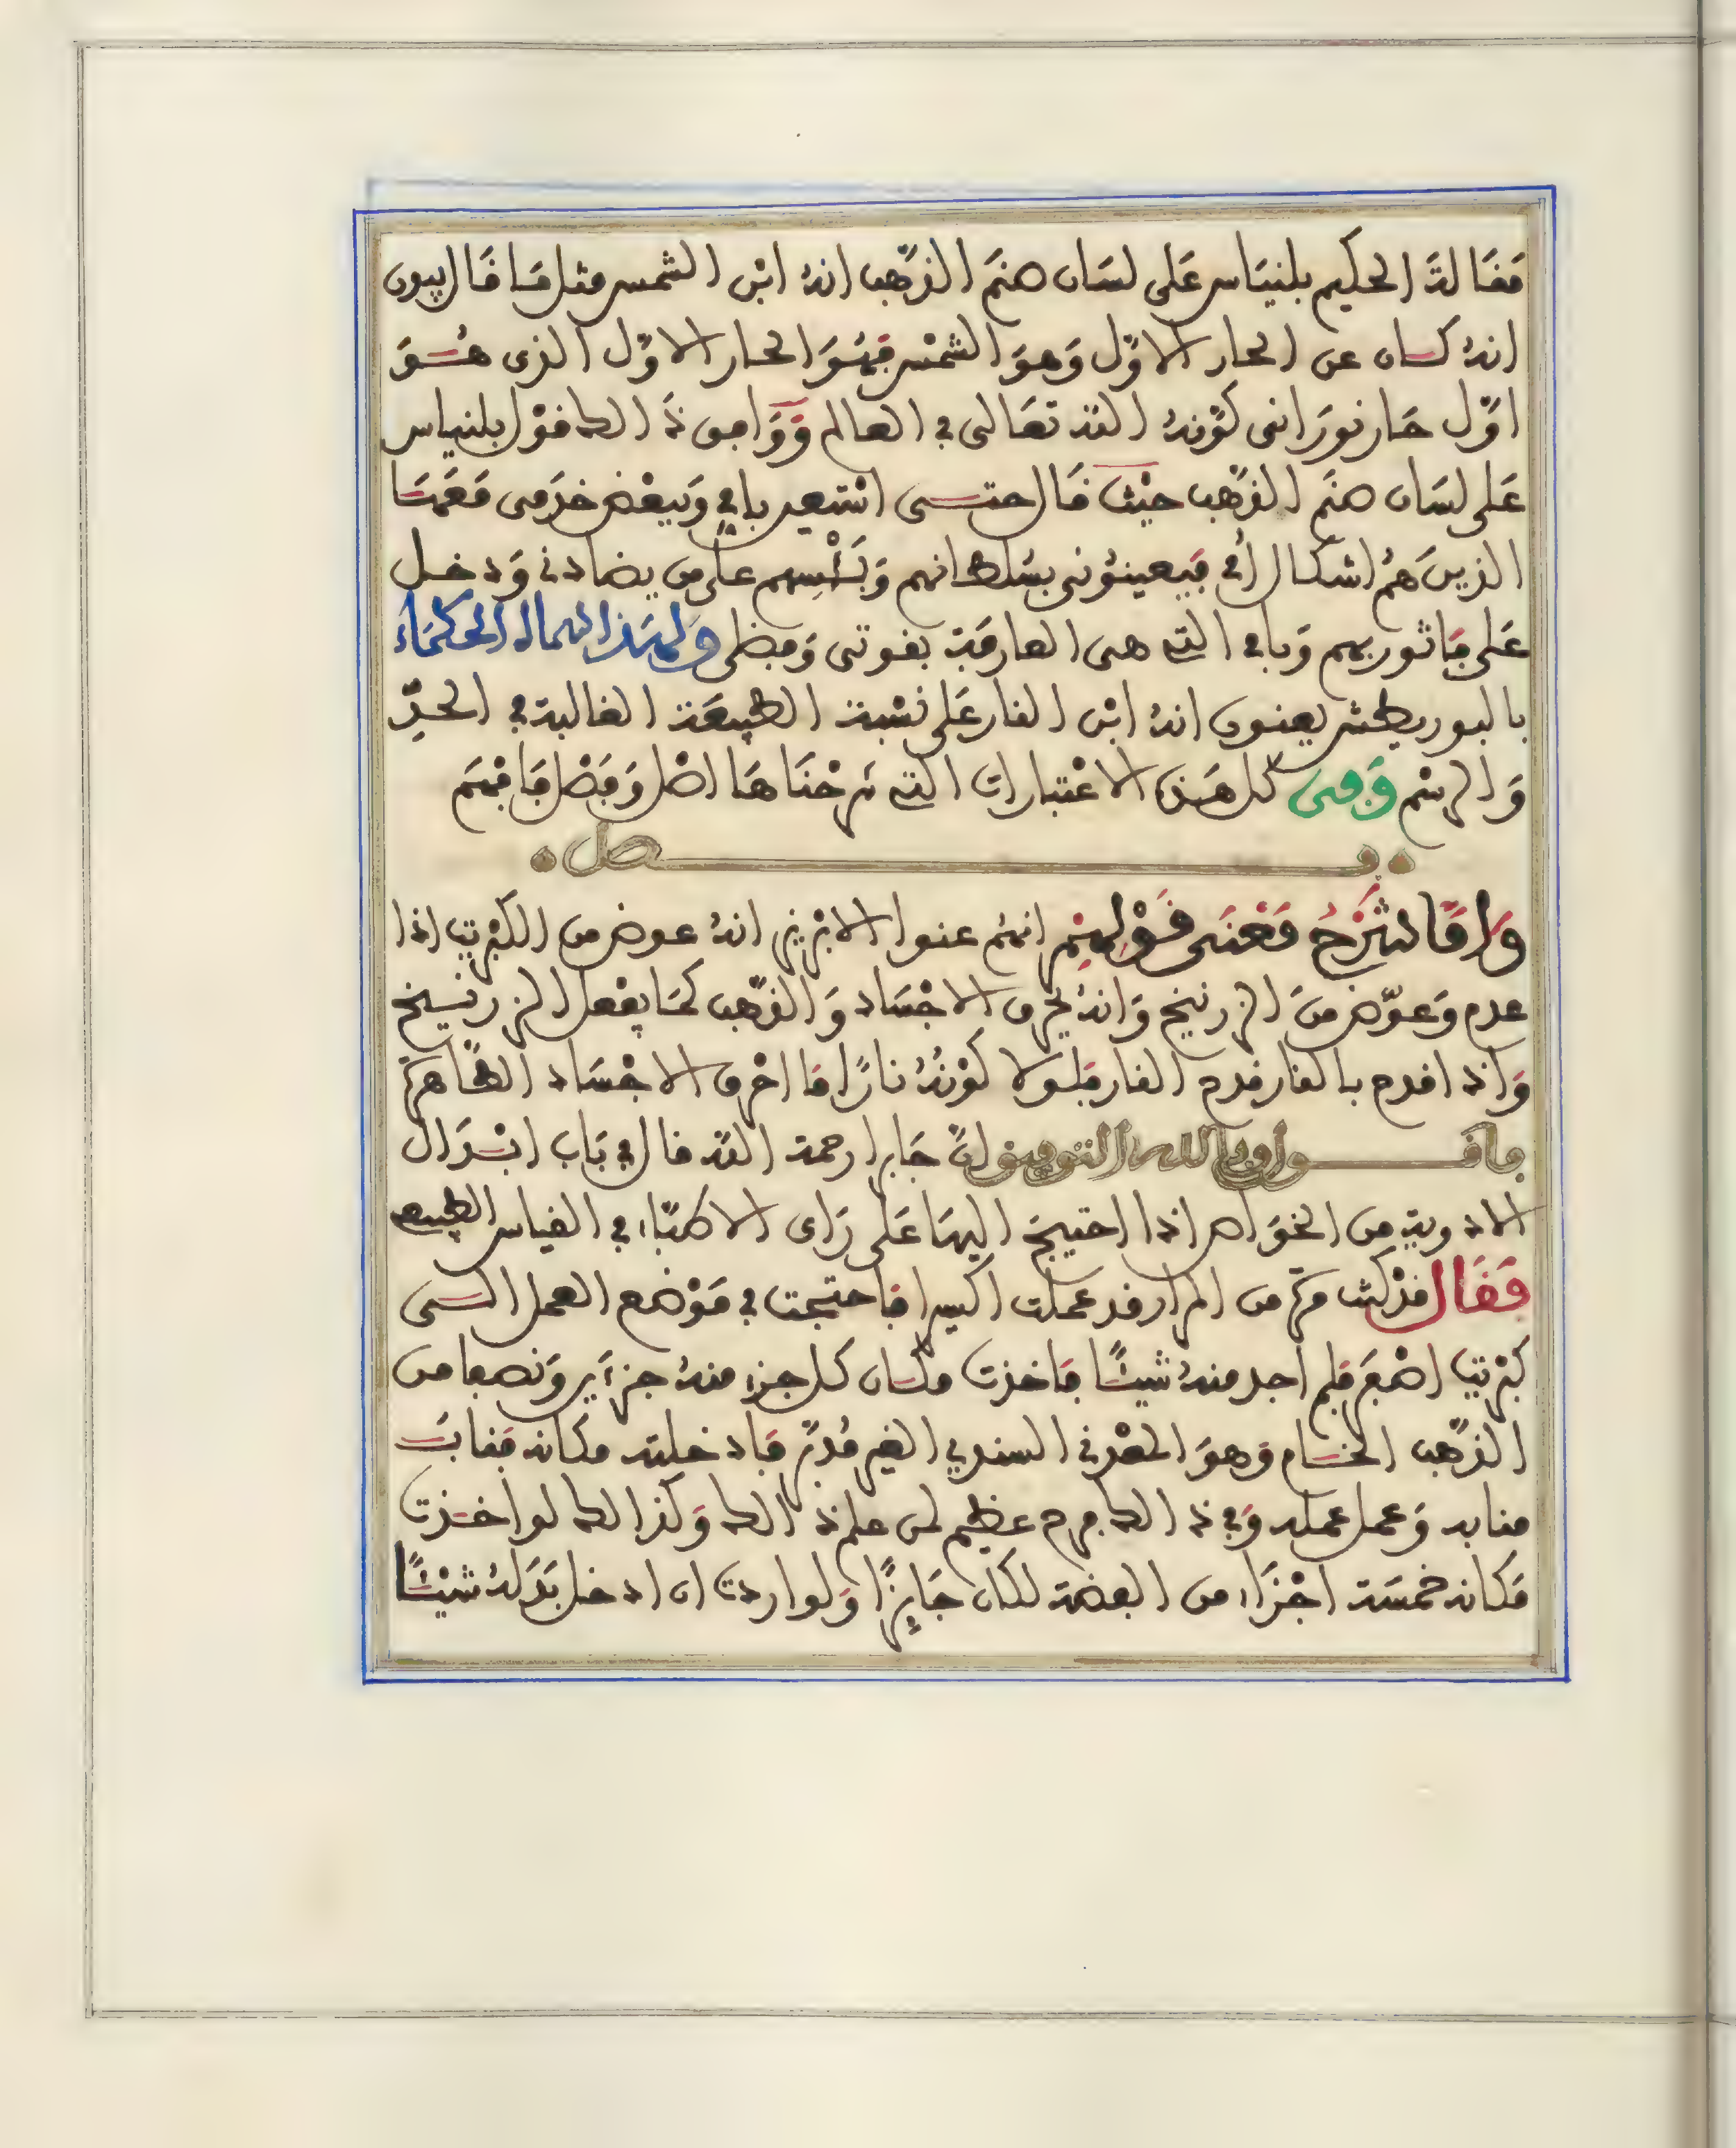 مقالة الحكيم بلنياس على لسان صنم الذهب انه ابن الشمس مثل ما قال
انه كان عن الحار الاول وهو الشمس فهو الحار الاول الذى هو
اول حار نورانى كونه الله تعالى في العالم ووافق ذالك قول بلنياس
على لسان صنم الذهب حيث قال حتى استعين بابي وببعض خدمى
الذين هم اشكال أبي فيعينونى بسلطانهم وبأسهم على من يضادنى ودخل
على وبابي التى هى العارفة بقوتى وفضلى ولهذا الحكماء
يعنون انه ابن النار على نسبة الطبيعة الغالبة في الحد
والرسم وفى كل هذه الاعتبارات التى شرحناها اصل وفصل فافهم
فصل
واما شرح معنى قولهم انهم عنوا الابريز انه عوض من الكبريت اذا
عدم وعوض من الزرنيخ وانه يحرق الاجساد والذهب كما يفعل الزرنيخ
واذا قدح بالنار قدح النار فلولا كونه نارا ما احرق الاجساد الطاهرة
فاقول وبالله التوفيق ان جابرا رحمة الله قال في باب ابدال
الادوية من الخواص اذا احتيج اليها على رأى الاطباء في القياس الطبيعى
فقال قد كنت مرة من المرار قد عملت اكسيرا فاحتجت في موضع العمل الى
كبريت اصفر فلم اجد منه شيئا فاخذت مكان كل جزء منه جزأين ونصفا من
الذهب الخام وهو المعدنى السندي الغير مدبر فادخلته مكانه فناب
منابه وعمل عمله وفي ذالك فرح عظيم لمن علم ذالك وكذالك لو اخذت
مكانه خمسة اجزاء من الفضة لكان جايزا ولو اردت ان ادخل بدله شيئا